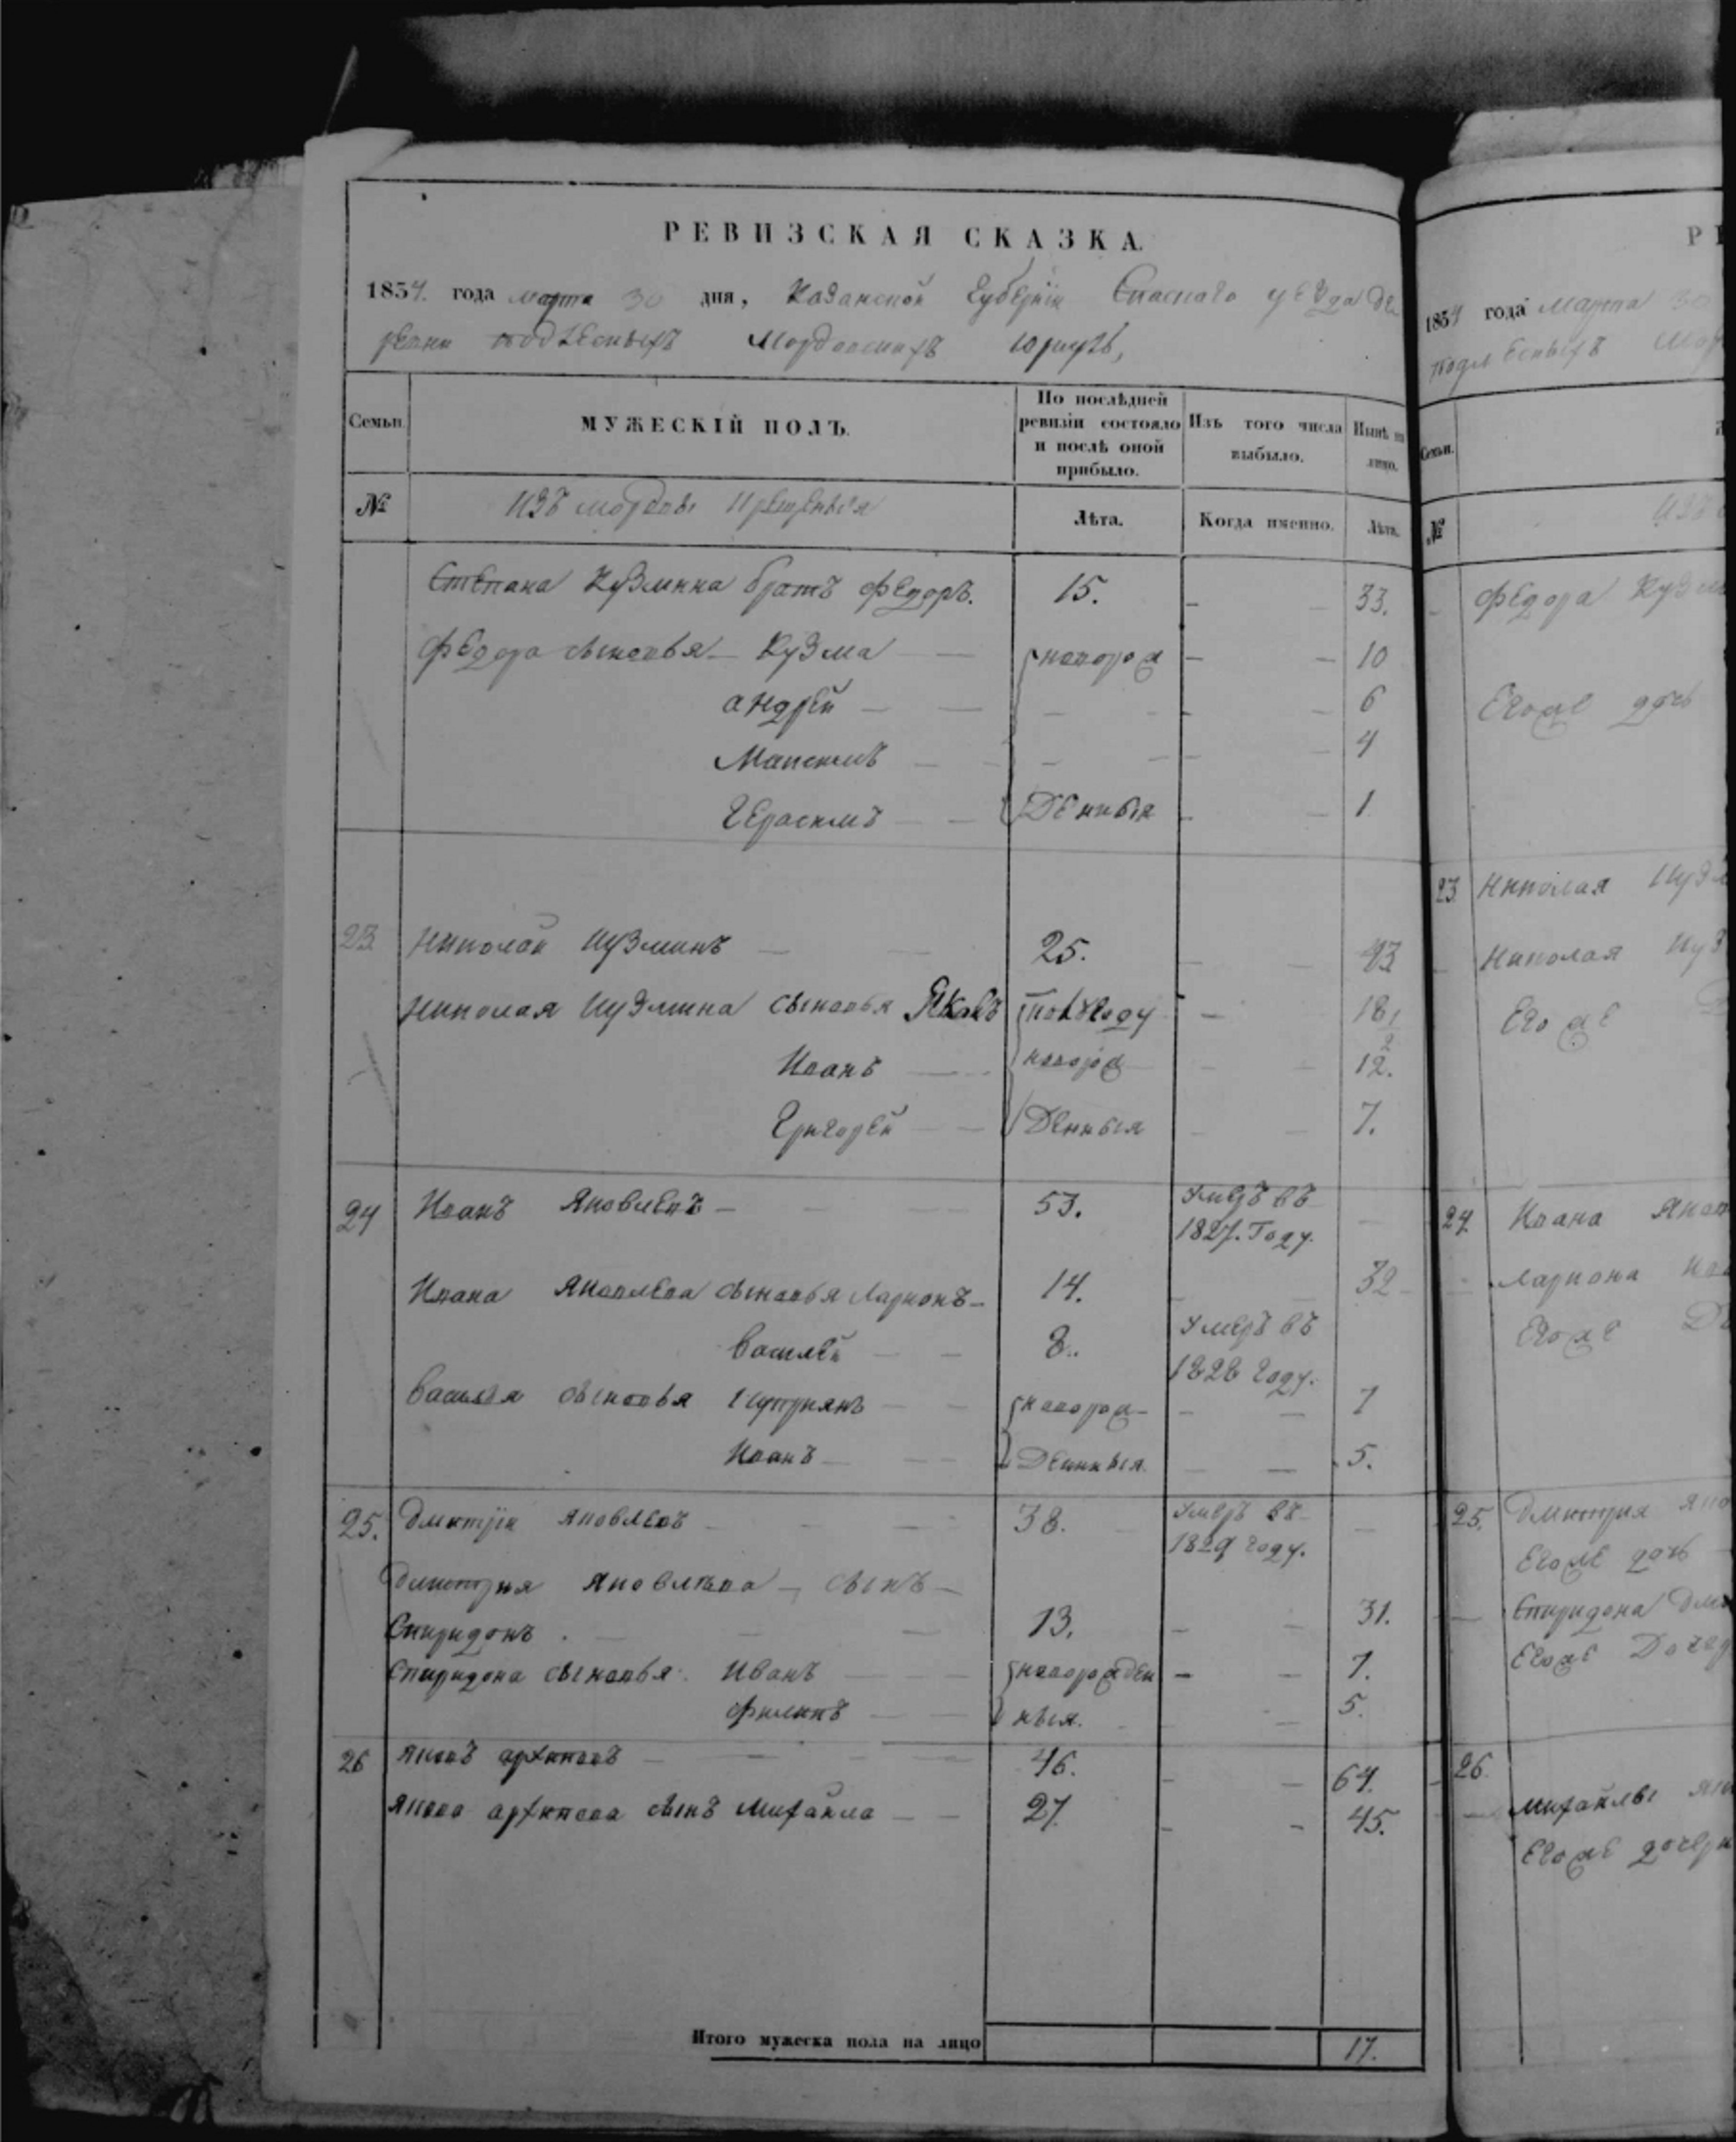 РЕВИЗСКАЯ СКАЗКА.
1834. года марта 30 дня, Казанской Губернiи Спаского уезда де
ревни подлесныхъ Мордовскихъ юрткулъ,
Семьи.
МУЖЕСКIЙ ПОЛЪ.
По послѣдней ревизiи состояло и послѣ оной прибыло.
Изъ того числа выбыло.
Нынѣ на лицо.
№
изъ мордвы крещеныя
Лѣта.
Когда именно.
Лѣта.
Степана Кузмина братъ федоръ. 15. 33.
федора сыновья Кузма новорож 10
андрей 6
Максимъ 4
Герасимъ Денныя 1
23. Николай Кузминъ 25. 43
Николая Кузмина сыновья Яковъ полугоду 18 1/2
Иванъ новорож 12.
Григорей Денныя 7.
24 Иванъ Яковлевъ 53. Умеръ въ
1827. Году.
Ивана Яковлева сыновья Ларионъ 14. 32
Василей 8. Умеръ въ
1828 году.
Василья сыновья Куприянъ новорож 7
Иванъ Деннныя 5.
25. Дмитрiй Яковлевъ 38. Умеръ въ
1829 году.
Дмитрия Яковлева сынъ
Спиридонъ 13. 31.
Спиридона сыновья: Иванъ новорожден 7.
филипъ ныя. 5.
26 Яковъ архиповъ 46. 64.
Якова архипова сынъ Михайла 27. 45.
Итого мужеска пола на лицо 17.
1834 года марта 30
подлесныхъ
Семьи.
№
федора
Егоже дочь
23 Николая
Николая
Егоже
24. Ивана
Лариона
Егоже
25. Дмитрия
Егоже дочь
Спиридона
Егоже
26.
Михайлы
Егоже дочери